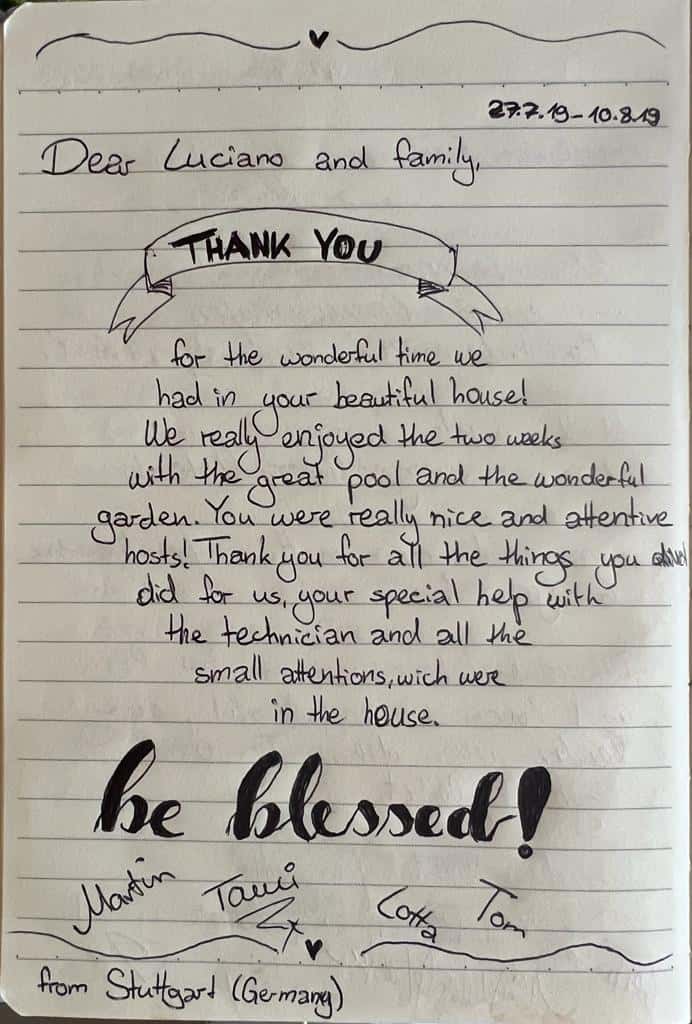 27.7.19-10.8.19
Dear Luciano and family,
THANK YOU
for the wonderful time we
had in your beautiful house!
We really enjoyed the two weeks
with the great pool and the wonderful
garden. You were really nice and attentive
hosts! Thank you for all the things you
did for us, your special help with
the technician and all the
small attentions, wich were
in the house.
be blessed!
Martin Lotta Tom
from Stuttgart (Germany)